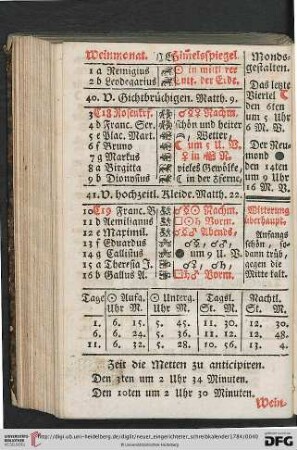 Weinmonat. Himelsspiegel. Monds-
gestalten.
1 a Remigius ☉ in mittl rer
2 b Leodegarius Entf. der Erde.
40. V. Gichtbrüchigen. Matth. 9.
3 C18 Rosenkrf. ☌ Nachm.
4 d Franc. Ser. schön und heiter
5 e Plac. Mart. Wetter,
6 f Bruno ☾ um 5 U. V.
7 g Markus
8 a Birgitta vieles Gewölke,
9 b Dionysius ☾ in der Eferne,
Das letzte
Viertel ☾
den 6ten
um 5 Uhr
6 M. V.
Der Neu-
mond
den 14ten
um 9 Uhr
16 M. V.
41. V. hochzeitl. Kleide. Matth. 22.
10 C19 Franc. B. Nachm.
11 d Aemilianus Vorm.
12 e Maximil. Abends,
13 f Eduardus
14 g Callistus um 9 U. V.
15 a Theresia J.
16 b Gallus A. Vorm.
Witterung
überhaupt.
Anfangs
schön, so-
dann trüb,
gegen die
Mitte kalt.
Tage ☉ Aufg. ☉ Unterg. Tagsl. Nachtl.
Uhr M. Uhr M. St. M. St. M.
1. 6. 15. 5. 45. 11. 30. 12. 30.
6. 6. 24. 5. 36. 11. 12. 12. 48.
11. 6. 32. 5. 28. 10. 56. 13. 4.
Zeit die Metten zu anticipiren.
Den 3ten um 2 Uhr 34 Minuten.
Den 10ten um 2 Uhr 30 Minuten.
Wein-
http://digi.ub.uni-heidelberg.de/diglit/neuer_eingerichteter_schreibkalender1784/0040
© Universitätsbibliothek Heidelberg
UNIVERSITÄTS-
BIBLIOTHEK
HEIDELBERG
gefördert durch die
DFG